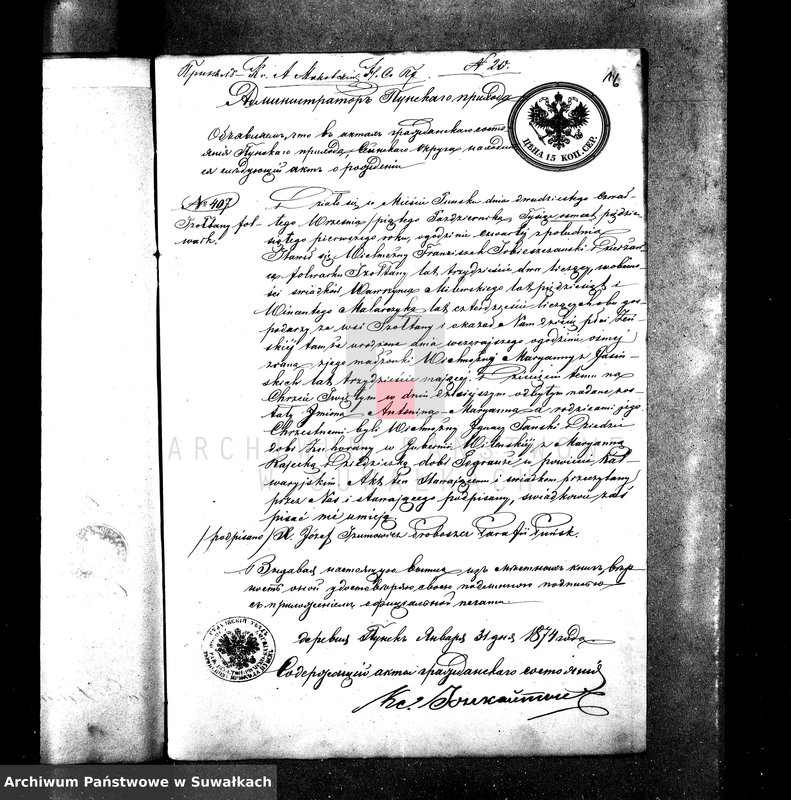 № 20.
16
Администраторъ Пунскаго прихода
ЦѢНА 15 КОП. СЕР.
Объявляемъ, что въ актахъ гражданскаго состо
янія Пунскаго прихода, Сейнскаго Округа находит
ся слѣдующій актъ о рожденіи
№ 407
Działo się w Mieście Puńsku dnia dwudziestego czwar
Szołtany fol
wark.
tego Września / piątego Października Tysiąc osmset pięćdzie
siątego pierwszego roku, o godzinie czwartej z południa
Stawił się Wielmożny Franciszek Sobieszczański Dzierżaw
ca folwarku Szołtany lat trzydzieście dwa liczący, w obecno
ści świadków Wawrzyna Milewskiego lat pięćdziesiąt i
Wincentego Malarczyka lat czterdzieści liczących obu gos
podarzy ze wsi Szołtany i okazał Nam dziecię płci Żeń
skiej tamże urodzone dnia wczorajszego o godzinie osmej
zrana, z jego małżonki Wielmożnej Maryanny z Jasiń
skich lat trzydzieście mającej. Dziecięciu temu na
Chrzcie Świętym w dniu dzisiejszym odbytym nadane zos
tały Imiona Antonina Maryanna a rodzicami jego
Chrzestnemi byli Wielmożny Ignacy Dziedzic
dobr w Gubernii Wileńskiej i Maryanna
Dziedziczka dobr w powiecie Kal
waryjskim. Akt ten Stawającemu i świadkom przeczytany
przez Nas i stawającego podpisany, świadkowie zaś
pisać nie umieją
/podpisano/ X. Józef Proboszcz Parafii Puńsk.
Выдавая настоящую выпись изъ книгъ, вѣр
ность оной удостовѣряю своею подписью
съ приложеніемъ оффиціальной печати
деревня Пунскъ Января 31 дня 1874 года
Содержащій акты гражданскаго состоянія
ARCHIWUM PAŃSTWOWE
W SUWAŁKACH
Archiwum Państwowe w Suwałkach